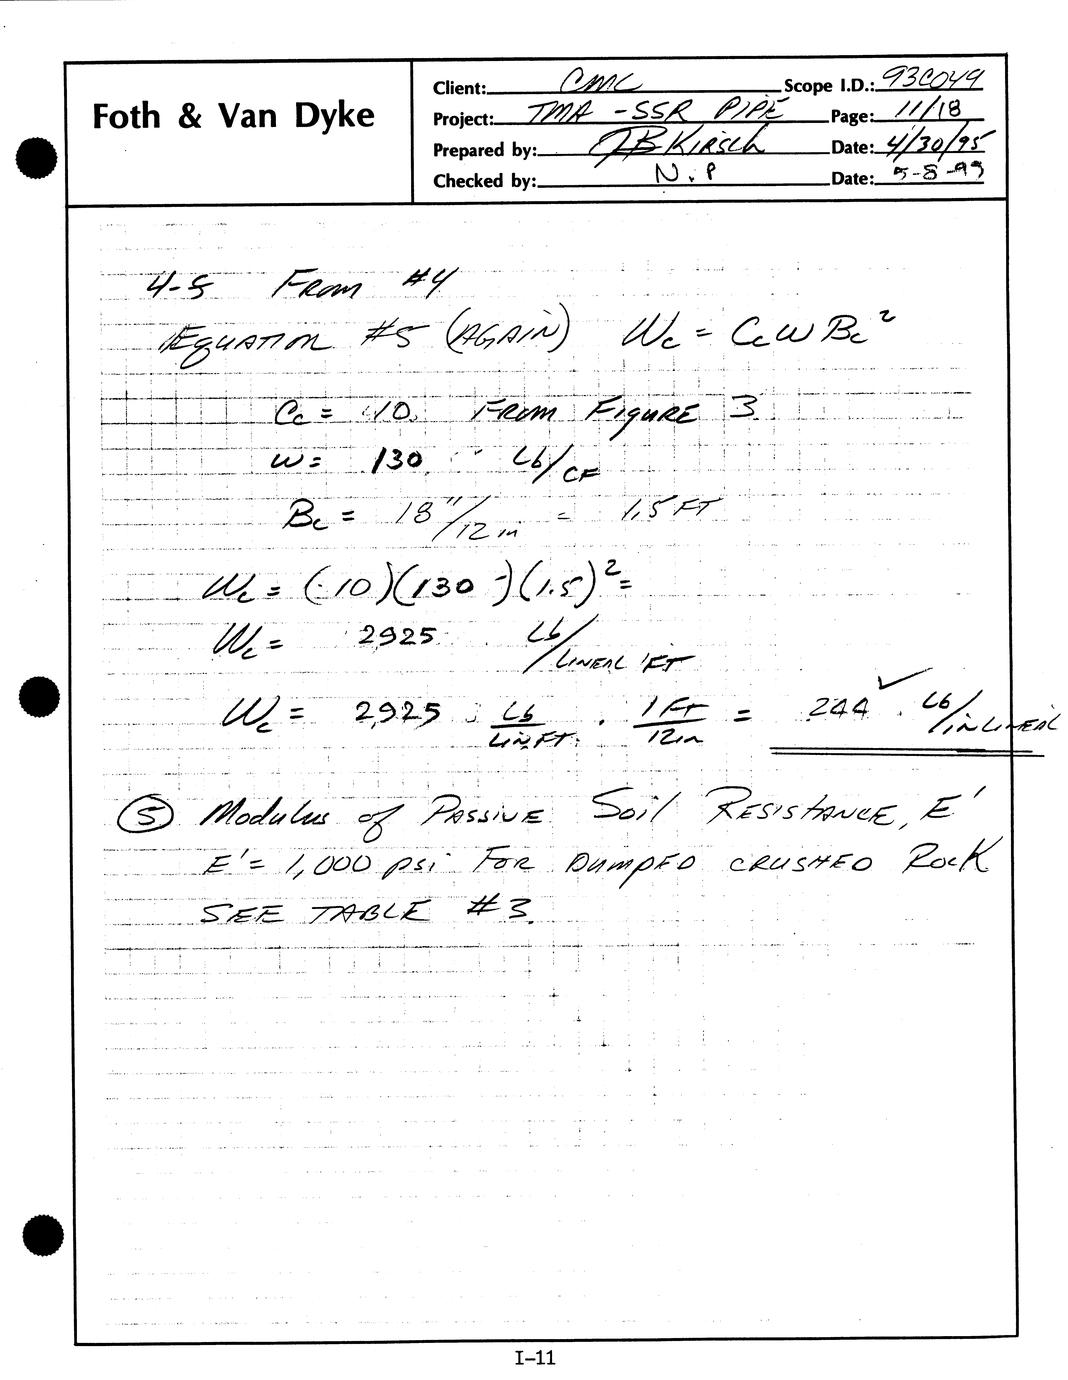 Foth & Van Dyke
Client: CMC Scope I.D.: 93C049
Project: TMA -SSR PIPE Page: 11/18
Prepared by: JB Kirsch Date: 4/30/95
Checked by: N.P Date: 5-8-95
4-5 From #4
Equation #5 (AGAIN) Wc = Cc w Bc²
Cc = 10. From Figure 3
w = 130 Lb/CF
Bc = 18"/12 in = 1.5 FT
Wc = (10)(130)(1.5)² =
Wc = 2925 Lb/LINEAL FT
Wc = 2925 Lb/LIN FT . 1 Ft/12in = 244 ✓ Lb/IN LINEAL
(5) Modulus of Passive Soil Resistance, E'
E' = 1,000 psi For Dumped crushed Rock
SEE TABLE #3.
I-11